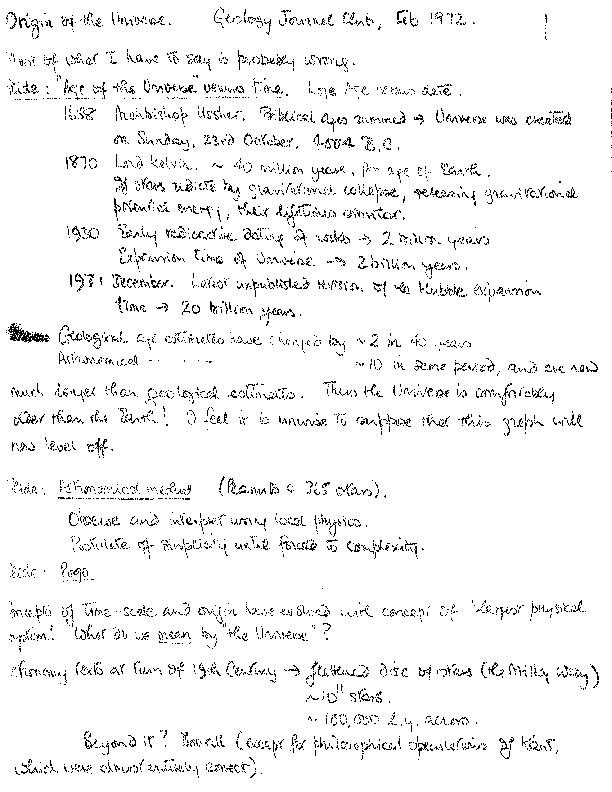 Origin of the Universe. Geology Journal Club, Feb 1972.
Most of what I have to say is probably wrong.
Slide: "Age of the Universe" versus time. Log Age versus date.
1658 Archbishop Ussher. Biblical ages summed → Universe was created
on Sunday, 23rd October, 4004 B.C.
1870 Lord Kelvin. ~ 40 million years, for age of Earth.
If stars radiate by gravitational collapse, releasing gravitational
potential energy, their lifetimes similar.
1930 Early radioactive dating of rocks → 2 billion years
Expansion time of Universe → 2 billion years.
1971 December. Latest unpublished revision of the Hubble expansion
time → 20 billion years.
Geological age estimates have changed by ~ 2 in 40 years
Astronomical - - - - ~10 in same period, and are now
much longer than geological estimates. Thus the Universe is comfortably
older than the Earth! I feel it is unwise to suppose that this graph will
now level off.
Slide: Astronomical method (Peanuts & 365 stars).
Observe and interpret using local physics.
Postulate of simplicity until forced to complexity.
Slide: Pogo.
Concepts of time-scale and origin have evolved with concept of "largest physical
system". What do we mean by "the Universe"?
Astronomy texts at turn of 19th Century → flattened disc of stars (the Milky Way)
~10" stars.
~ 100,000 l.y. across.
Beyond it? (except for philosophical speculations of Kant,
which were almost entirely correct).